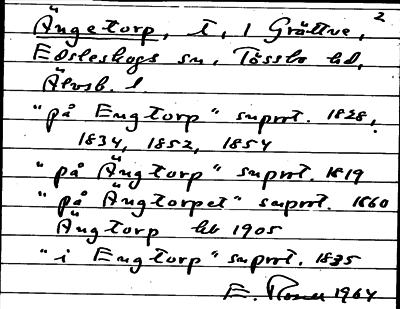 2
Ängetorp, T, 1 Grättve,
Edsleskogs sn, Tössbo hd,
Älvsb. l.
"på Engtorp" suprot. 1828,
1834, 1852, 1854
"på Ängtorp" suprot. 1819
"på Ängtorpet" suprot. 1860
Ängtorp hb 1905
"i Engtorp" suprot. 1835
E. 1964